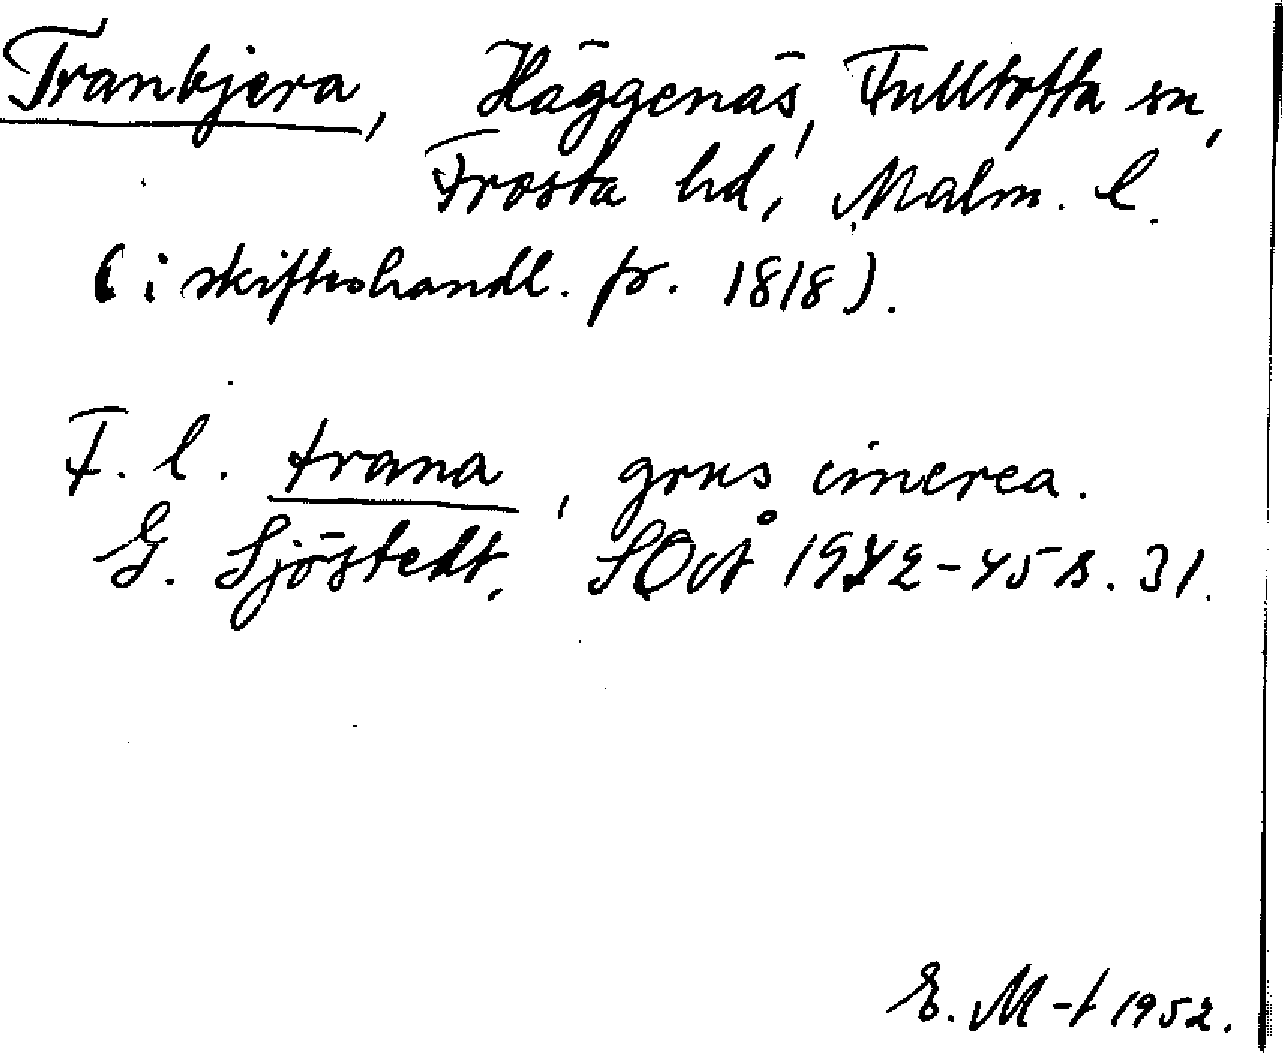 Tranbjera, Häggenäs, Fulltofta sn,
Frosta hd, Malm. l.
(i skifteshandl. fr. 1818).
F. l. trana, grus cinerea.
G. Sjöstedt, SOÅ 1942-45 s. 31.
E. M-t 1952.